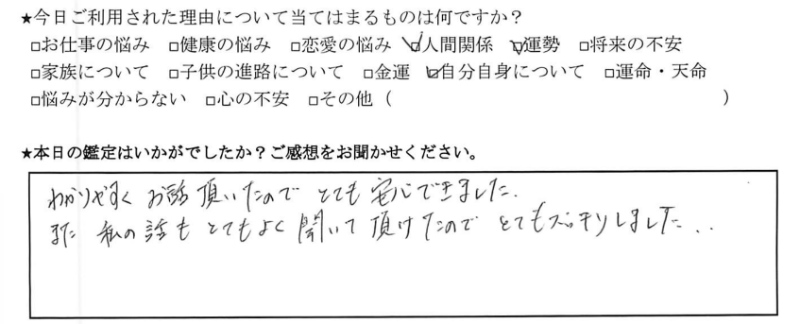 ★今日ご利用された理由について当てはまるものは何ですか？
□お仕事の悩み □健康の悩み □恋愛の悩み ☑人間関係 ☑運勢 □将来の不安
□家族について □子供の進路について □金運 ☑自分自身について □運命・天命
□悩みが分からない □心の不安 □その他（ ）
★本日の鑑定はいかがでしたか？ご感想をお聞かせください。
わかりやすく お話 頂いたので とても 安心できました.
また 私の話も とてもよく 聞いて 頂けたので とてもスッキリしました..